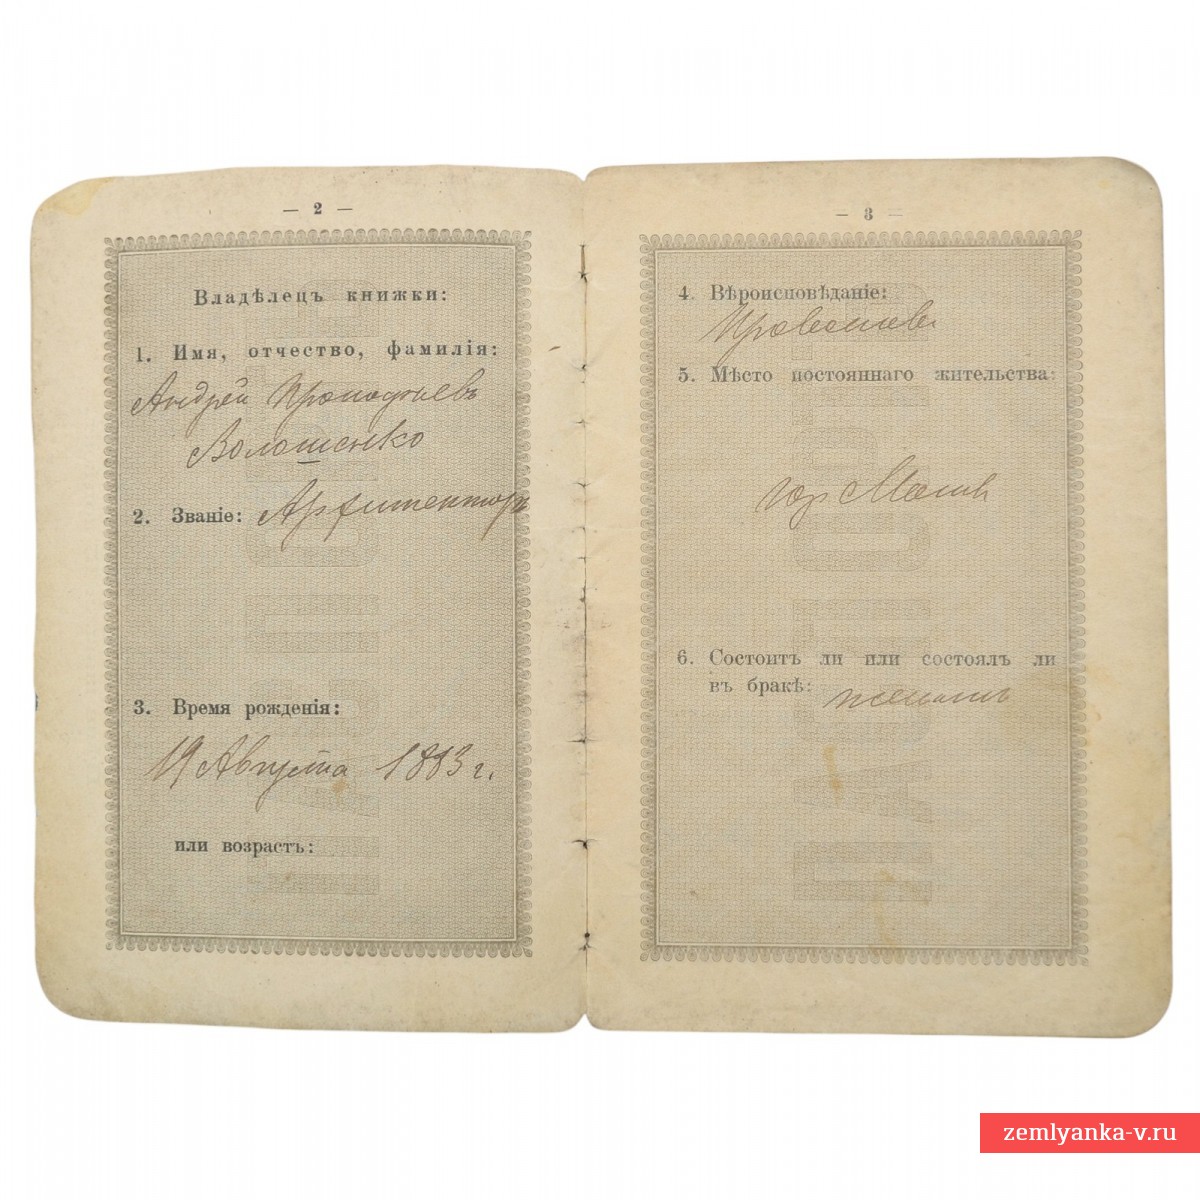 — 2 —
Владѣлецъ книжки:
1. Имя, отчество, фамилія:
Андрей
Волошенко
2. Званіе: Архитекторъ
3. Время рожденія:
19 Августа 1883 г.
или возрастъ:
— 3 —
4. Вѣроисповѣданіе:
Православ.
5. Мѣсто постояннаго жительства:
гор
6. Состоитъ ли или состоялъ ли
въ бракѣ: женатъ
ПАСПОРТЪ
ПАСПОРТЪ
zemlyanka-v.ru